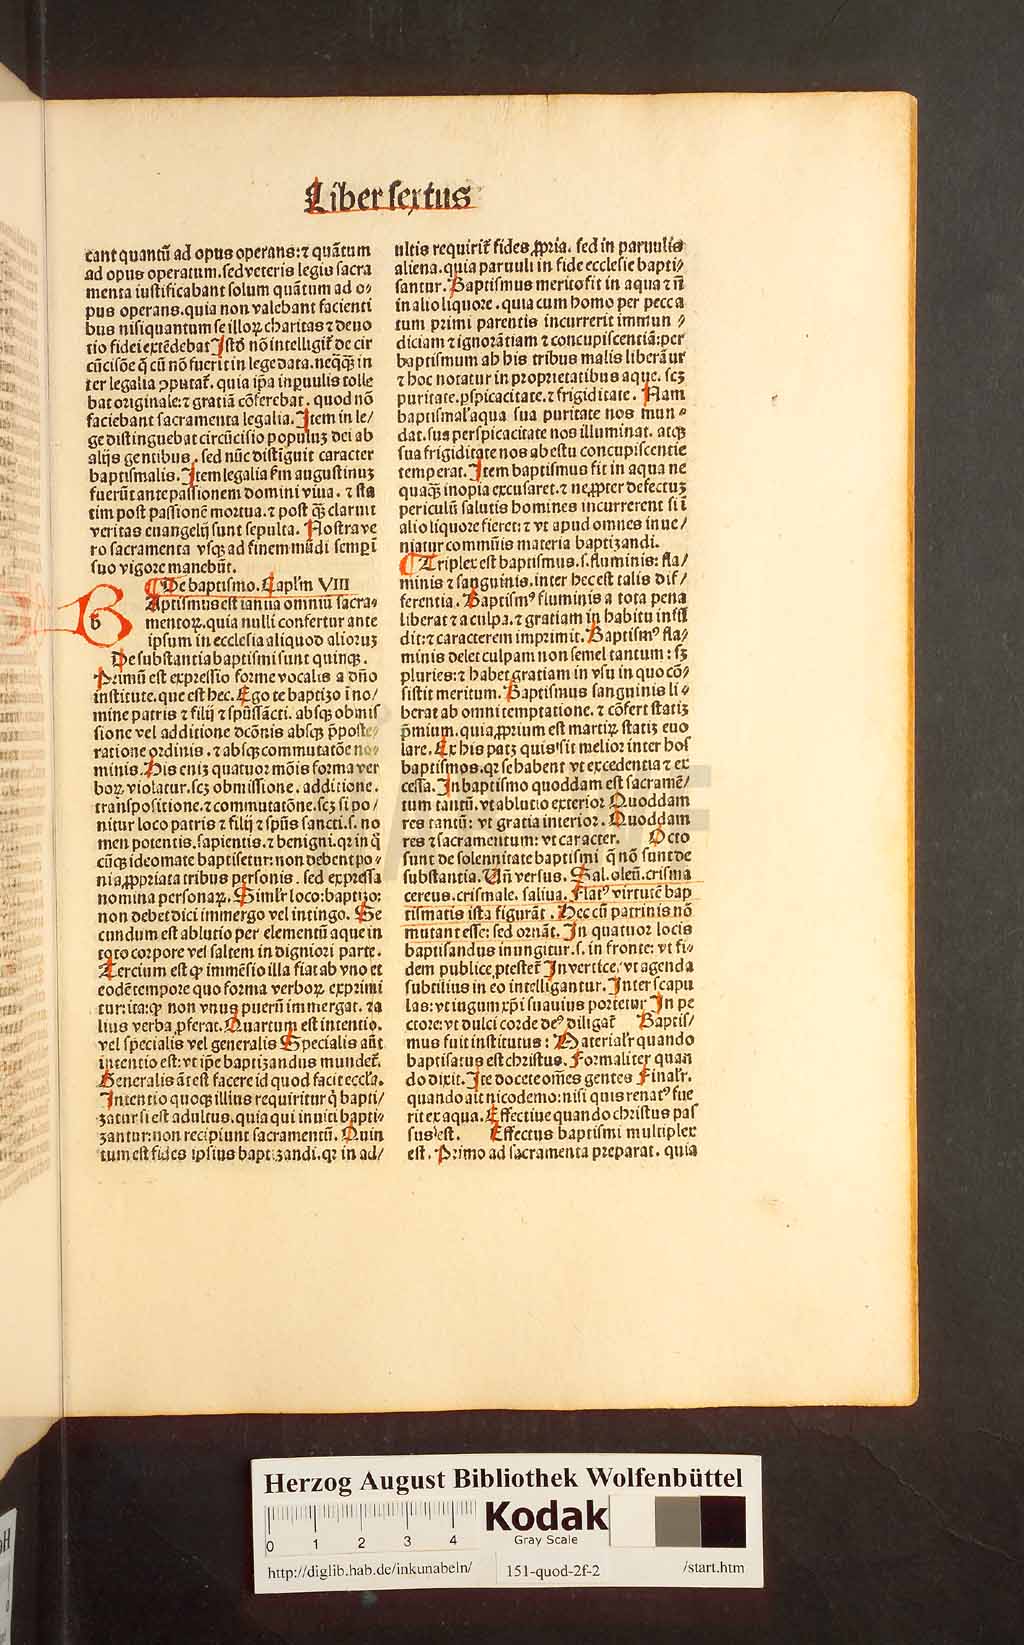 Liber sextus
cant quantū ad opus operans: ⁊ quātum
ad opus operatum. sed veteris legis sacra
menta iustificabant solum quātum ad o⸗
pus operans. quia non valebant facienti
bus nisi quantum se illoꝝ charitas ⁊ deuo
tio fidei extēdebat Istō nō intelligit̄ de cir
cūcisōe q̄ cū nō fuerit in lege data. neqꝫ in
ter legalia ↄputat̄. quia ip̄a in ꝑuulis tolle
bat originale: ⁊ gratiā cōferebat. quod nō
faciebant sacramenta legalia. Item in le/
ge distinguebat circūcisio populuꝫ dei ab
alijs gentibus. sed nūc distiguit caracter
baptismalis. Item legalia ẜm augustinuꝫ
fuerūt ante passionem domini viua. ⁊ sta
tim post passionē mortua. ⁊ post qꝫ claruit
veritas euangelij sunt sepulta. Nostra ve
ro sacramenta vsqꝫ ad finem mūdi semꝑ ī
suo vigore manebūt.
De baptismo. Capl'm VIII
b
Aptismus est ianua omniū sacra⸗
mentoꝝ. quia nulli confertur ante
ipsum in ecclesia aliquod alioruꝫ
De substantia baptismi sunt quinqꝫ.
Primū est expressio forme vocalis a dn̄o
institute. que est hec. Ego te baptizo ī no/
mine patris ⁊ filij ⁊ sp̄ussācti. absqꝫ obmis
sione vel additione dcōnis absqꝫ p̄poste⸗
ratione ordinis. ⁊ absqꝫ commutatōe no⸗
minis. His eniꝫ quatuor mōis forma ver
boꝝ violatur. scꝫ obmissione. additione.
transpositione. ⁊ commutatōne. scꝫ si po/
nitur loco patris ⁊ filij ⁊ sp̄us sancti. s. no
men potentis. sapientis. ⁊ benigni. qꝛ in q̄
cūqꝫ ideomate baptisetur: non debent po⸗
ni a ꝓpriata tribus personis. sed expressa
nomina personaꝝ. Simil'r loco: baptizo:
non debet dici immergo vel intingo. Se
cundum est ablutio per elementū aque in
toto corpore vel saltem in digniori parte.
Tercium est qꝙ immēsio illa fiat ab vno et
eodē tempore quo forma verboꝝ exprimi
tur: ita: qꝙ non vnus puerū immergat. ⁊ a
lius verba ꝓferat. Quartum est intentio.
vel specialis vel generalis Specialis aūt
intentio est: vt ip̄e baptizandus mundet̄.
Generalis āt est facere id quod facit eccl'a.
Intentio quoqꝫ illius requiritur q̄ bapti/
zatur si est adultus. quia qui inuiti bapti⸗
zantur: non recipiunt sacramentū. Quin
tum est fides ipsius baptizandi. qꝛ in ad/
ultis requirit̄ fides ꝓpria. sed in paruulis
aliena. quia paruuli in fide ecclesie bapti⸗
santur. Baptismus merito fit in aqua ⁊ n̄
in alio liquore. quia cum homo per pecca
tum primi parentis incurrerit immun⸗
diciam ⁊ ignorātiam ⁊ concupiscentiā: per
baptismum ab his tribus malis liberātur
⁊ hoc notatur in proprietatibus aque. scꝫ
puritate. ꝑspicacitate. ⁊ frigiditate. Nam
baptismal' aqua sua puritate nos mun⸗
dat. sua perspicacitate nos illuminat. atqꝫ
sua frigiditate nos ab estu concupiscentie
temperat. Item baptismus fit in aqua ne
quaqꝫ inopia excusaret. ⁊ ne ꝓpter defectuꝫ
periculū salutis homines incurrerent si ī
alio liquore fieret: ⁊ vt apud omnes inue/
niatur commūis materia baptizandi.
Triplex est baptismus. s. fluminis: fla/
minis ⁊ sanguinis. inter hec est talis dif/
ferentia. Baptismꝰ fluminis a tota pena
liberat ⁊ a culpa. ⁊ gratiam in habitu infū
dit: ⁊ caracterem imprimit. Baptismꝰ fla/
minis delet culpam non semel tantum: sꝫ
pluries: ⁊ habet gratiam in vsu in quo cō⸗
sistit meritum. Baptismus sanguinis li⸗
berat ab omni temptatione. ⁊ cōfert statiꝫ
p̄mium. quia ꝓprium est martiꝝ statiꝫ euo
lare. Ex his patꝫ quis sit melior inter hos
baptismos. qꝛ se habent vt excedentia ⁊ ex
cessa. In baptismo quoddam est sacramē/
tum tantū. vt ablutio exterior Quoddam
res tantū: vt gratia interior. Quoddam
res ⁊ sacramentum: vt caracter. Octo
sunt de solennitate baptismi q̄ nō sunt de
substantia. Un̄ versus. Sal. oleū. crisma
cereus. crismale. saliua. Flatꝰ virtutē bap
tismatis ista figurāt. Hec cū patrinis nō
mutant esse: sed ornāt. In quatuor locis
baptisandus inungitur. s. in fronte: vt fi⸗
dem publice ꝓtestet̄ In vertice, vt agenda
subtilius in eo intelligantur. Inter scapu
las: vt iugum xp̄i suauius portetur In pe
ctore: vt dulci corde deꝰ diligat̄ Baptis/
mus fuit institutus: Materialr̄ quando
baptisatus est christus. Formaliter quan
do dixit. Ite docete om̄es gentes Finalr̄.
quando ait nicodemo: nisi quis renatꝰ fue
rit ex aqua. Effectiue quando christus pas
sus est. Effectus baptismi multiplex
est. Primo ad sacramenta preparat. quia
Herzog August Bibliothek Wolfenbüttel
0 1 2 3 4
Kodak
Gray Scale
http://diglib.hab.de/inkunabeln/ 151-quod-2f-2 /start.htm